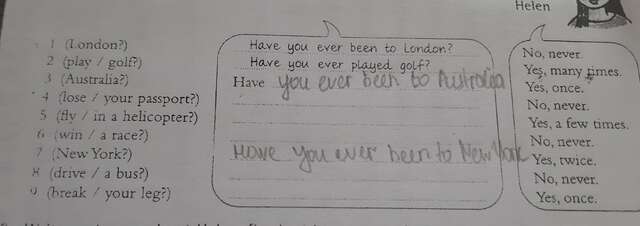 Helen
1 (London?)
2 (play / golf?)
3 (Australia?)
4 (lose / your passport?)
5 (fly / in a helicopter?)
6 (win / a race?)
7 (New York?)
8 (drive / a bus?)
9 (break / your leg?)
Have you ever been to London?
Have you ever played golf?
Have you ever been to Australia
Have you ever been to New York
No, never.
Yes, many times.
Yes, once.
No, never.
Yes, a few times.
No, never.
Yes, twice.
No, never.
Yes, once.